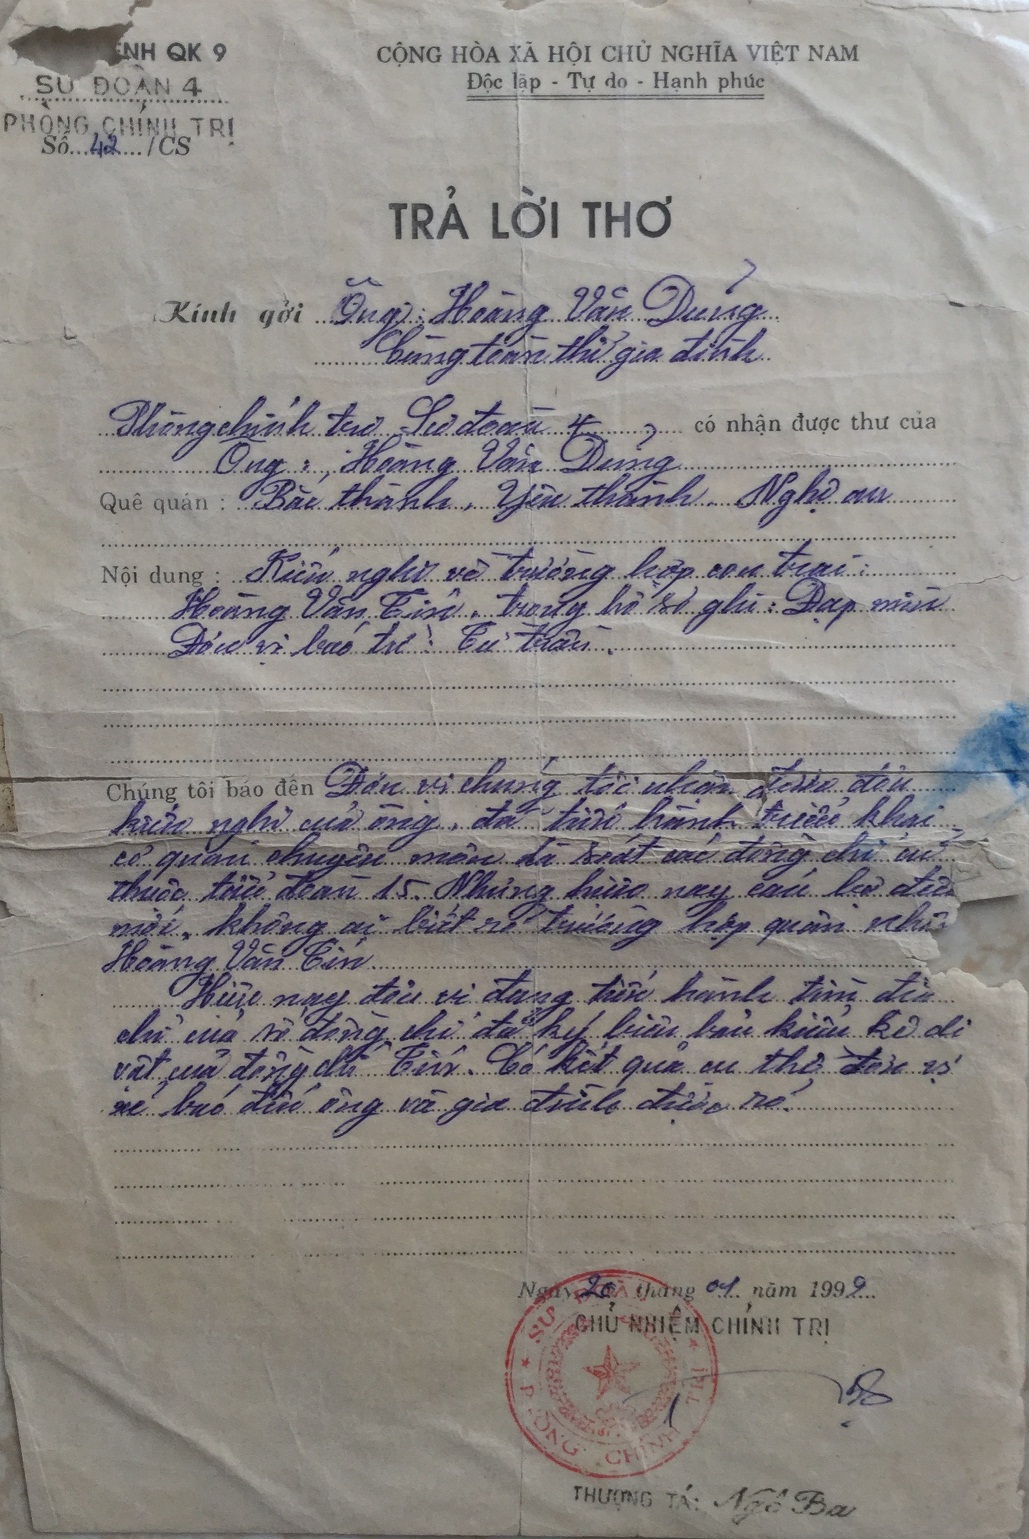 ỆNH QK 9
SƯ ĐOÀN 4
PHÒNG CHÍNH TRỊ
Số 42 /CS
CỘNG HÒA XÃ HỘI CHỦ NGHĨA VIỆT NAM
Độc lập - Tự do - Hạnh phúc
TRẢ LỜI THƠ
Kính gởi Ông: Hoàng Văn Dung
Cùng toàn thể gia đình
Phòng chính trị Sư đoàn 4, có nhận được thư của
Ông: Hoàng Văn Dung
Quê quán: Bắc thành, Yên thành, Nghệ an
Nội dung: Kiến nghị về trường hợp con trai:
Hoàng Văn Tiến, trong hồ sơ ghi: Đạp mìn
Đơn vị báo tử: Từ trần.
Chúng tôi báo đến Đơn vị chúng tôi nhận được đơn
kiến nghị của ông, đã tiến hành triển khai
cơ quan chuyên môn rà soát các đồng chí cũ
thuộc tiểu đoàn 15. Nhưng hiện nay cán bộ đều
mới, không ai biết rõ trường hợp quân nhân
Hoàng Văn Tiến
Hiện nay đơn vị đang tiến hành tìm địa
chỉ của số đồng chí đã ký biên bản kiểm kê di
vật của đồng chí Tiến. Có kết quả cụ thể đơn vị
sẽ báo đến ông và gia đình được rõ.
Ngày 20 tháng 01 năm 1999
CHỦ NHIỆM CHÍNH TRỊ
SƯ ĐOÀN 4
PHÒNG CHÍNH TRỊ
THƯỢNG TÁ: Ngô Ba